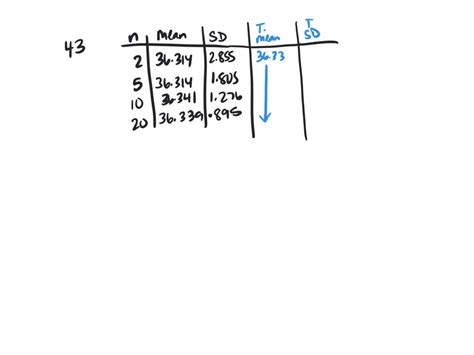 43
n mean SD T. mean T SD
2 36.314 2.855 36.33
5 36.314 1.805
10 36.341 1.276
20 36.339 .895